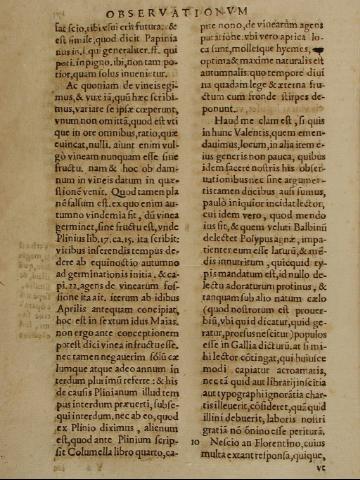 OBSERVATIONVM
sat scio, tibi vsui erit futura: &
est simile, quod dicit Papinia
nus in. l. qui generaliter. ff. qui
poti. in pigno. ibi, non tam po
tior, quam solus inuenitur.
Ac quoniam de vineis egi-
mus, & vuæ iã, quũ hæc scribi
mus, variare se ipsæ cœperunt,
vnum non omittã, quod est vti
que in ore omnibus, ratio, quæ
euincat, nulli, aiunt enim vul-
gò vineam nunquam esse sine
fructu, nam & hoc ob dam-
num in vineis datum in quæ-
stionê venit. Quod tamen pla
nè falsum est. ex quo enim au-
tumno vindemia fit, dũ vinea
germinet, sine fructu est, vnde
Plinius lib. 17. ca. 15. ita scribit:
vitibus inserendis tempus de-
dere ab equinoctio autumno
ad germinationis initia, & ca-
pi. 22, agens de vinearum fos-
sione ita ait. iterum ab idibus
Aprilis antequam concipiat,
hoc est in sextum idus Maias,
non ergo ante conceptionem
potest dici vinea in fructu esse,
nec tamen negauerim sôlũ cæ
lumque atque adeo annum in
terdum plurimũ referre: & his
de causis Plinianum illud tem
pus interdum præuerti, subse-
qui interdum, nec ab eo, quod
ex Plinio diximus, alienum
est, quod ante Plinium scrip-
sit Columella libro quarto, ca-
pite nono, de vinearum agens
putatione. vbi vero aprica lo-
ca sunt, mollesque hyemes,
optima & maxime naturalis est
autumnalis: quo tempore diui
na quadam lege & æterna fru-
ctum cum fronde stirpes de-
ponunt.
Haud me clam est, si quis
in hunc Valentis, quem emen-
dauimus, locum, in alia item e-
ius generis non pauca, quibus
idem facere nostris his obser-
uationibus nec sine argumen-
tis tamen ducibus ausi sumus,
paulò iniquior incidat lector,
cui idem vero, quod mendo
ius sit, & quem veluti Balbinũ
delectet Polypus agnæ, impa-
tienter eum esse laturũ, & mẽ-
dis innutritum, quicquid ty-
pis mandatum est, id nullo de-
lectu adoraturum protinus, &
tanquam sub alio natum cælo
(quod nostrorum est prouer-
biũ, vbi qui dicatur, quid ge-
ratur, prorsus nescitur) populos
esse in Gallia dicturũ. at si mi-
hi lector côtingat, qui huiusce
modi capiatur acroamatis,
nec tã quid aut librarij inscitia
aut typographi ignorãtia char-
tis illeuerit, côsideret, quã quid
illini debuerit, laboris nostri
gratiã nô omnino esse peritură.
10 Nescio an Florentino, cuius
multa extant responsa, quique,
vt